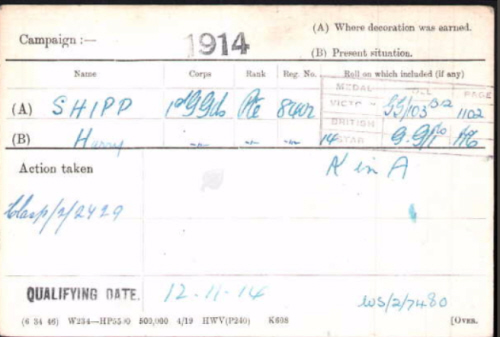 Campaign :— 1914 (A) Where decoration was earned.
(B) Present situation.
Name Corps Rank Reg. No. Roll on which included (if any)
MEDAL ROLL PAGE
(A) SHIPP 1st G Gds Pte 8402 VICTORY GG/103 B12 1102
BRITISH
(B) Harry -"- -"- -"- 14 STAR G.G/1 46
Action taken K in A
Clasp/2/2429
QUALIFYING DATE. 12-11-14
WS/2/7480
(6 34 46) W234—HP5590 500,000 4/19 HWV(P240) K608 [OVER.